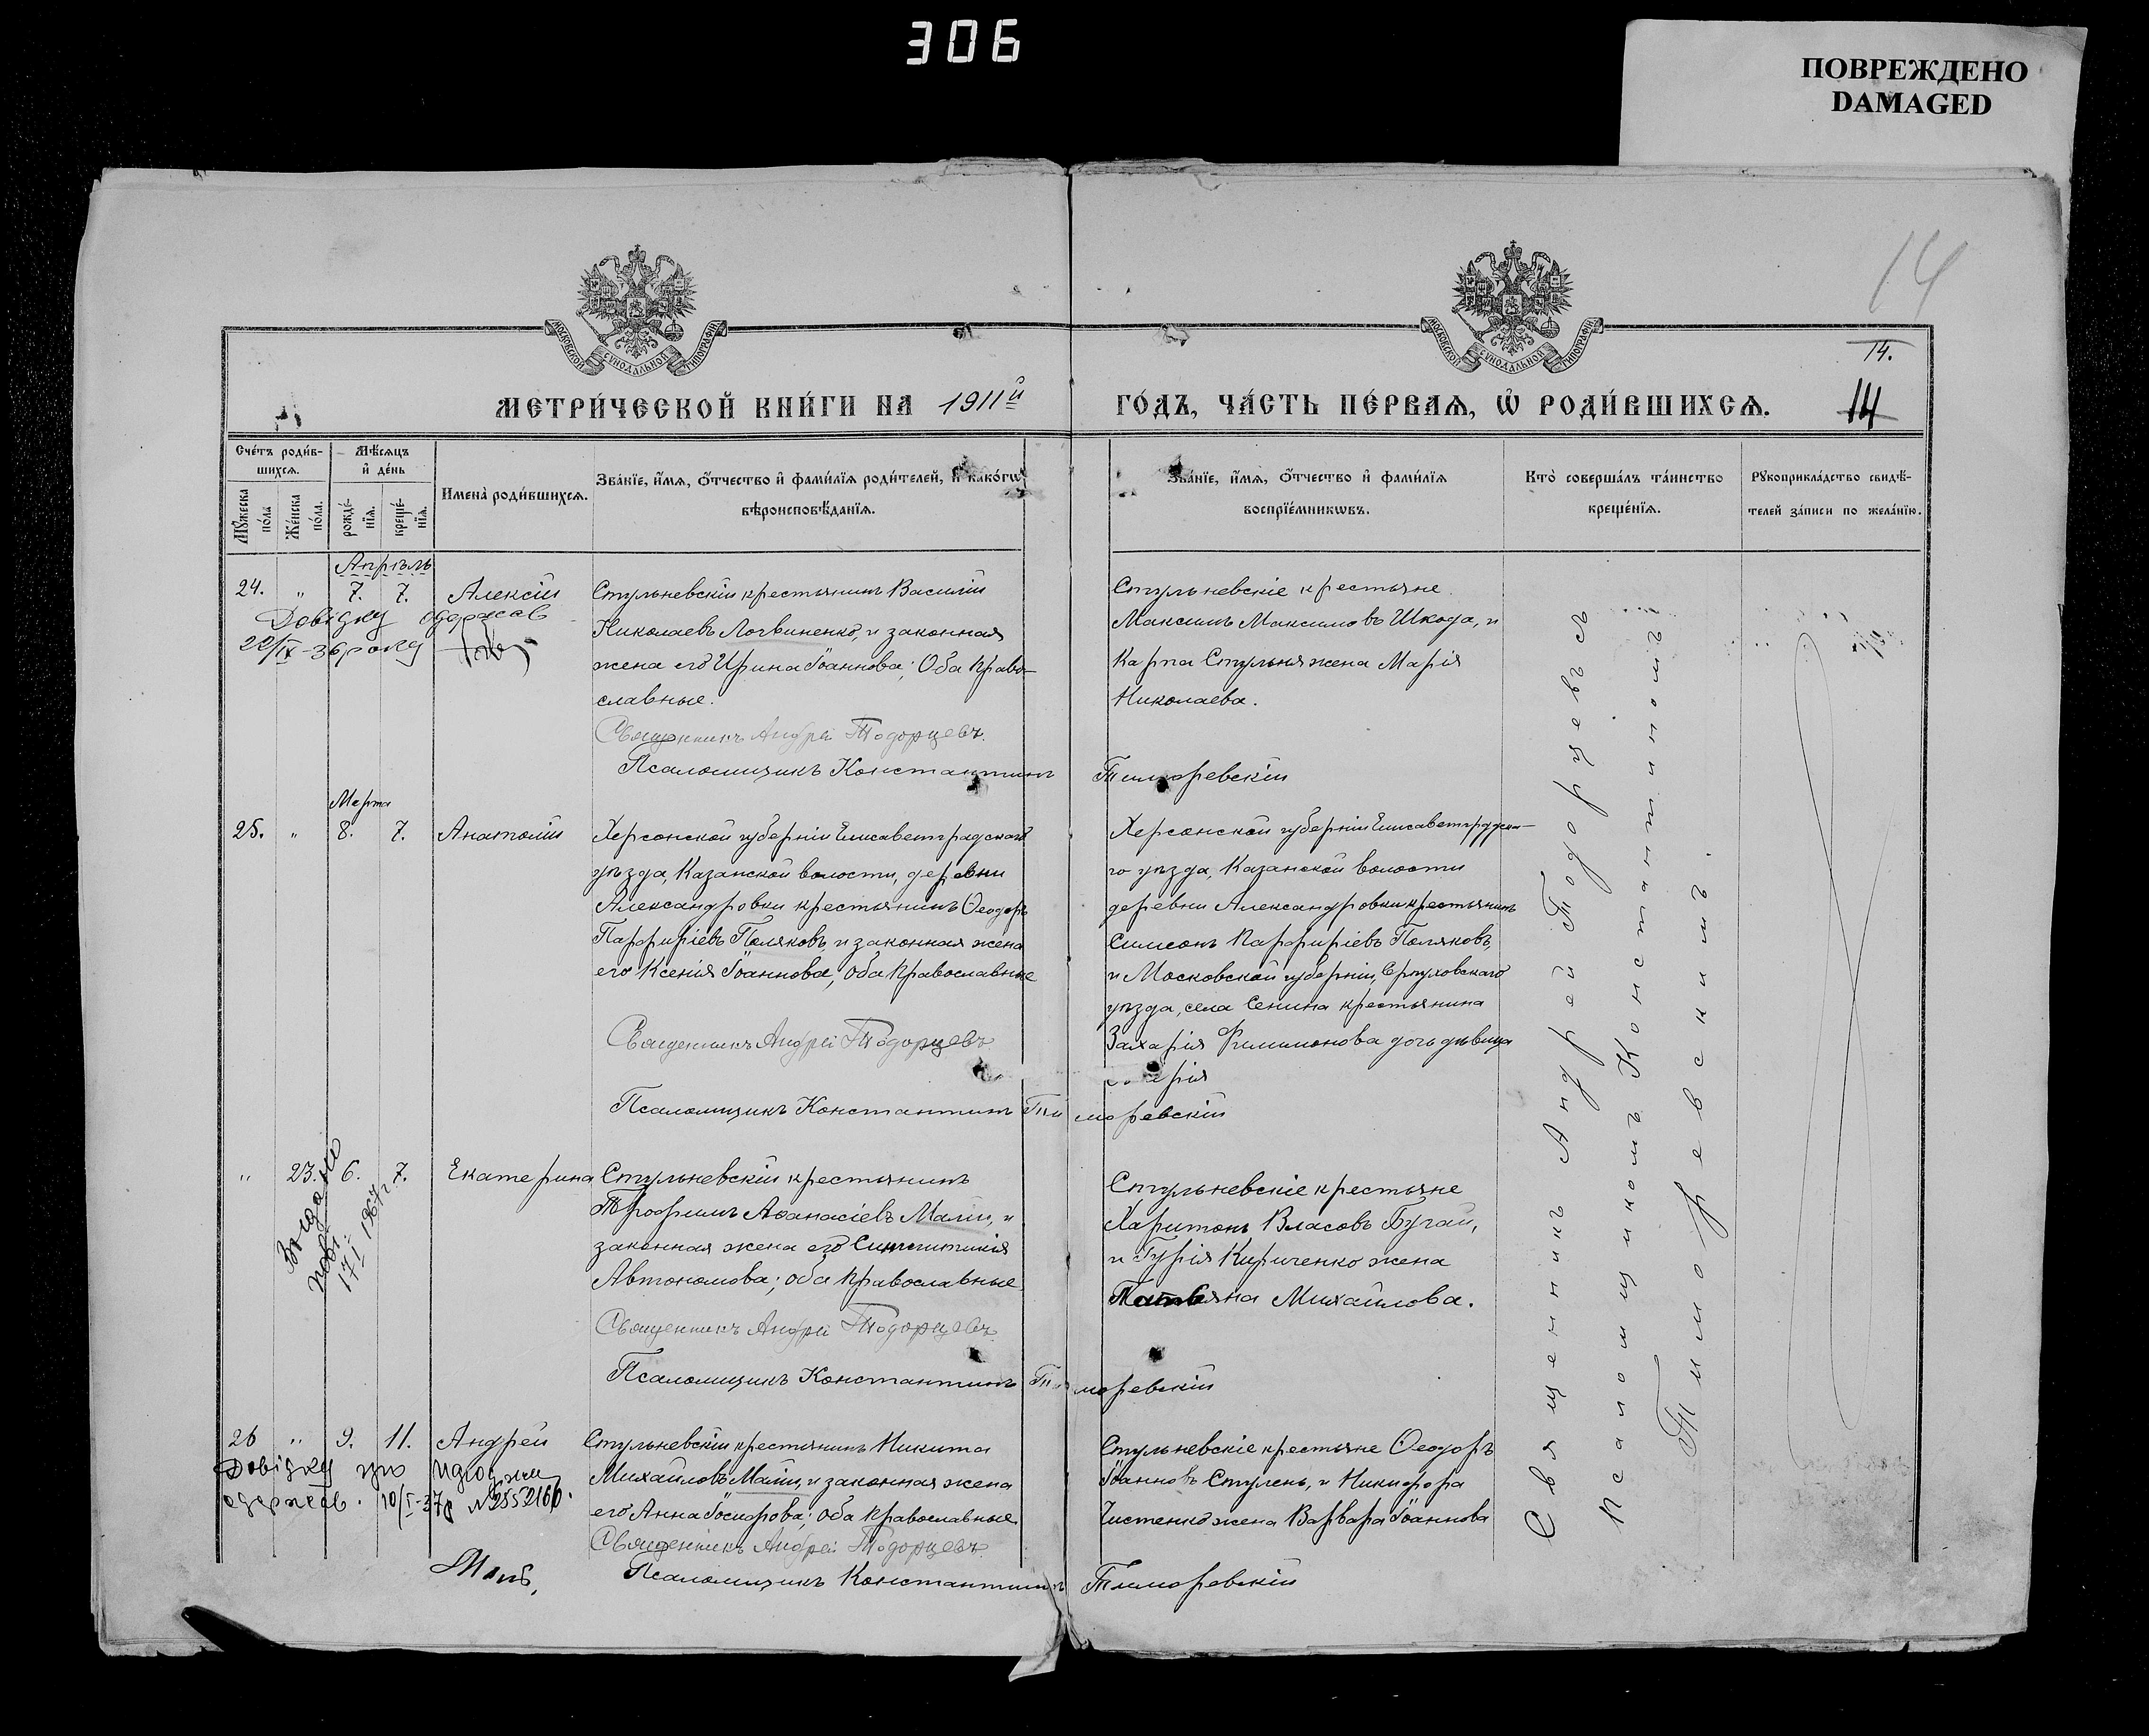 306
ПОВРЕЖДЕНО
DAMAGED
14
МОСКОВСКОЙ СУНОДАЛЬНОЙ ТИПОГРАФІИ
МОСКОВСКОЙ СУНОДАЛЬНОЙ ТИПОГРАФІИ
14.
МЕТРИ́ЧЕСКОЙ КНИ́ГИ НА 1911й
ГО́ДЪ, ЧА́СТЬ ПЕ́РВАЯ, Ѡ҆ РОДИ́ВШИХСЯ.
14
Сче́тъ роди́в-
шихся.
Мѣсяцъ
и҆ де́нь
Мꙋ́жеска
по́ла
Же́нска
по́ла.
рожде́-
нїя.
креще́-
нїя.
И҆мена̀ роди́вшихся.
Зва́нїе, и҆́мя, ѻ҆́тчество и҆ фами́лїя роди́телей, и҆ како́гѡ
вѣроисповѣ́данїя.
Зва́нїе, и҆́мя, ѻ҆́тчество и҆ фами́лїя
воспрїе́мникѡвъ.
Кто̀ соверша́лъ та́инство
креще́нїя.
Рꙋкоприкла́дство свидѣ́-
телей за́писи по жела́нїю.
Апрѣль
24. " 7. 7. Алексій
Довідку одержав
22/IX-36 року
Стульневскій крестьянинъ Василій
Николаевъ Логвиненко, и законная
жена его Ирина Іоаннова; Оба право-
славные.
Священникъ Андрей Тодорцевъ.
Псаломщикъ Константинъ Тиморевскій
Стульневскіе крестьяне
Максимъ Максимовъ Шкода, и
Карпа Стульня жена Марія
Николаева.
Марта
25. " 8. 7. Анатолій
Херсонской губерніи Елисаветградскаго
уѣзда, Казанской волости, деревни
Александровки крестьянинъ Ѳеодоръ
Парфиріевъ Поляковъ, и законная жена
его Ксенія Іоаннова, Оба православные
Священникъ Андрей Тодорцевъ
Псаломщикъ Константинъ Тиморевскій
Херсонской губерніи Елисаветградска-
го уѣзда, Казанской волости
деревни Александровки крестьянинъ
Симеонъ Парфиріевъ Поляковъ,
и Московской губерніи, Серпуховскаго
уѣзда, села Сенина крестьянина
Захарія Филимонова дочь дѣвица
" 23. 6. 7. Екатерина
17/I 1967 г.
Стульневскій крестьянинъ
Трофимъ Аѳанасіевъ Малій, и
законная жена его Синклитикія
Автономова; оба православные
Священникъ Андрей Тодорцевъ.
Псаломщикъ Константинъ Тиморевскій
Стульневскіе крестьяне
Харитонъ Власовъ Бугай,
и Гурія Кириченко жена
Татьяна Михайлова.
26 " 9. 11. Андрей
Довідку про
одержав. 10/I-37р № 2552166.
Стульневскій крестьянинъ Никита
Михайловъ Малій, и законная жена
его Анна Іосифова; Оба православные
Священникъ Андрей Тодорцевъ.
Псаломщикъ Константинъ Тиморевскій
Стульневскіе крестьяне Ѳеодоръ
Іоанновъ Стулень, и Никифора
Чистенко жена Варвара Іоаннова
Священникъ Андрей Тодорцевъ съ
Псаломщикомъ Константиномъ
Тиморевскимъ.